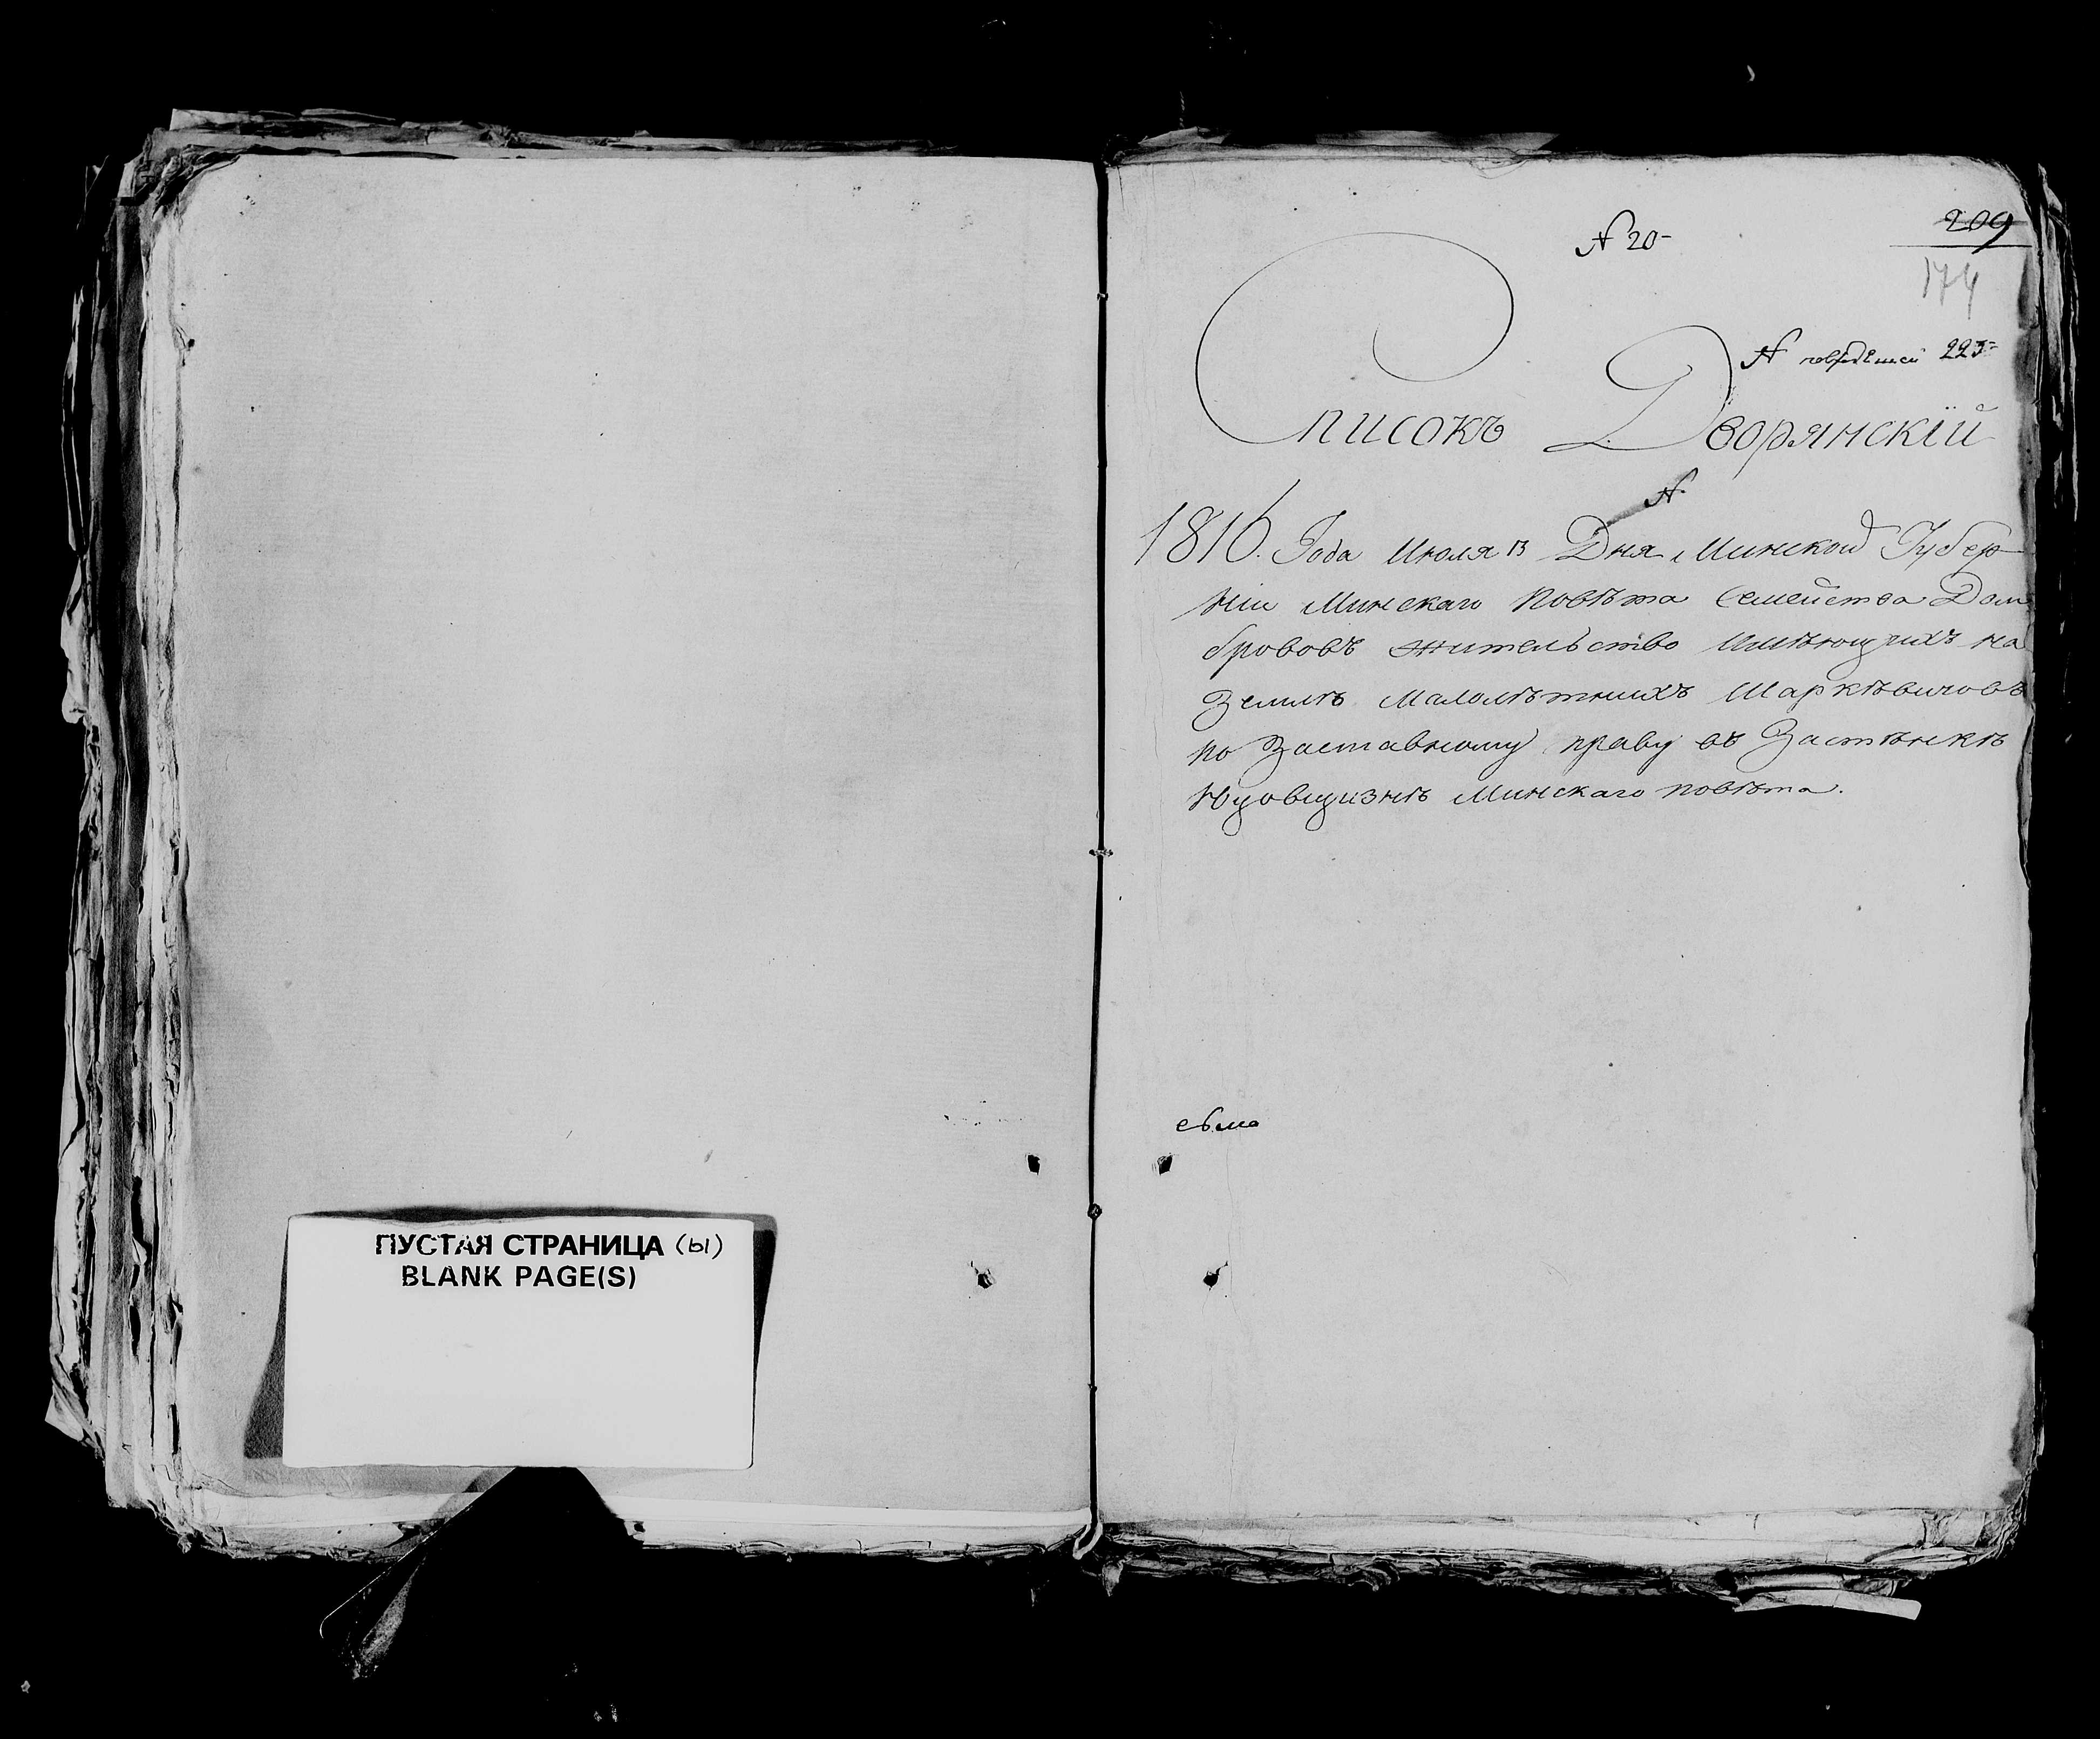 ПУСТАЯ СТРАНИЦА (ы)
BLANK PAGE(S)
№ 20-
209
174
№ 223-
Списокъ Дворянскій
№
1816. Года Июля 13 Дня Минской Губер-
ніи Минскаго Повѣта Семейства Дом
брововъ жительство имѣющихъ на
Землѣ Малолѣтнихъ Маркѣвичовъ
по Заставному праву въ Застѣнкѣ
Минскаго повѣта.